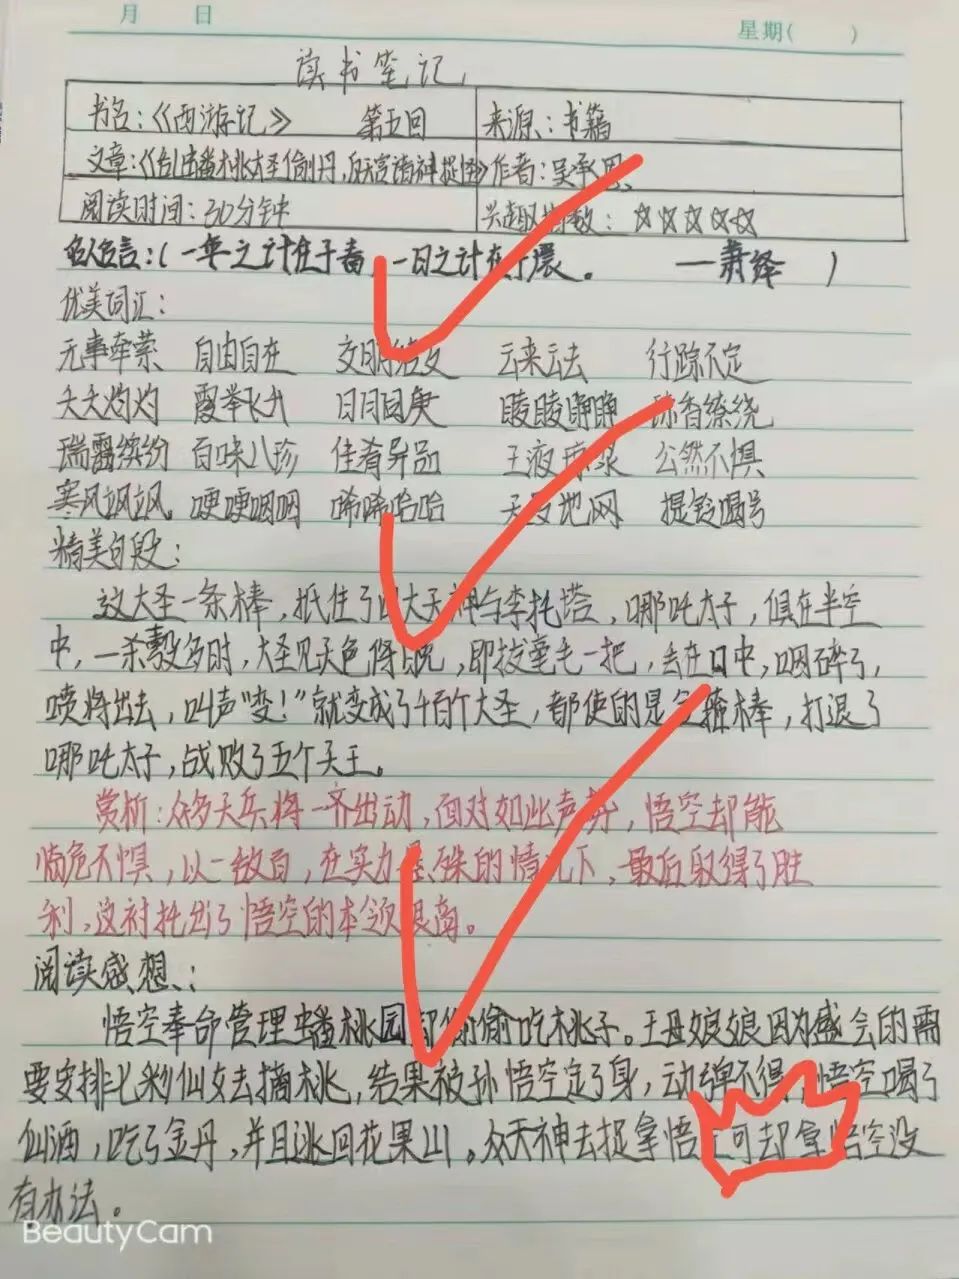 月 日
星期( )
读书笔记
书名:《西游记》 第五回 来源:书籍
文章:《乱蟠桃大圣偷丹,反天宫诸神捉怪》作者:吴承恩
阅读时间:30分钟 兴趣指数:☆☆☆☆☆
名人名言:(一年之计在于春,一日之计在于晨。 ——萧绎 )
优美词汇:
无事牵萦 自由自在 交朋结友 云来云去 行踪不定
夭夭灼灼 霞举飞升 缭绕
瑞霭缤纷 百味八珍 佳肴异品 公然不惧
寒风飒飒 哽哽咽咽 唏唏哈哈 天罗地网 提铃喝号
精美句段:
这大圣一条棒,抵住了四大天神与李托塔,哪吒太子,俱在半空
中,一杀彀多时,大圣见天色将晚,即拔毫毛一把,丢在口中,咽碎了,
喷将出去,叫声“变!”就变成了千百个大圣,都使的是金箍棒,打退了
哪吒太子,战败了五个天王。
赏析:众多天兵将一齐出动,面对如此声势,悟空却能
临危不惧,以一敌百,在实力悬殊的情况下,最后取得了胜
利,这衬托出了悟空的本领很高。
阅读感想:
悟空奉命管理蟠桃园却偷偷吃桃子。王母娘娘因为盛会的需
要安排七彩仙女去摘桃,结果被孙悟空定了身,动弹不得,悟空喝了
仙酒,吃了金丹,并且逃回花果山。众天神去捉拿悟空可却拿悟空没
有办法。
BeautyCam